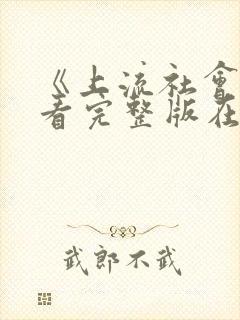 《上流社會
看完整版在
武郎不武